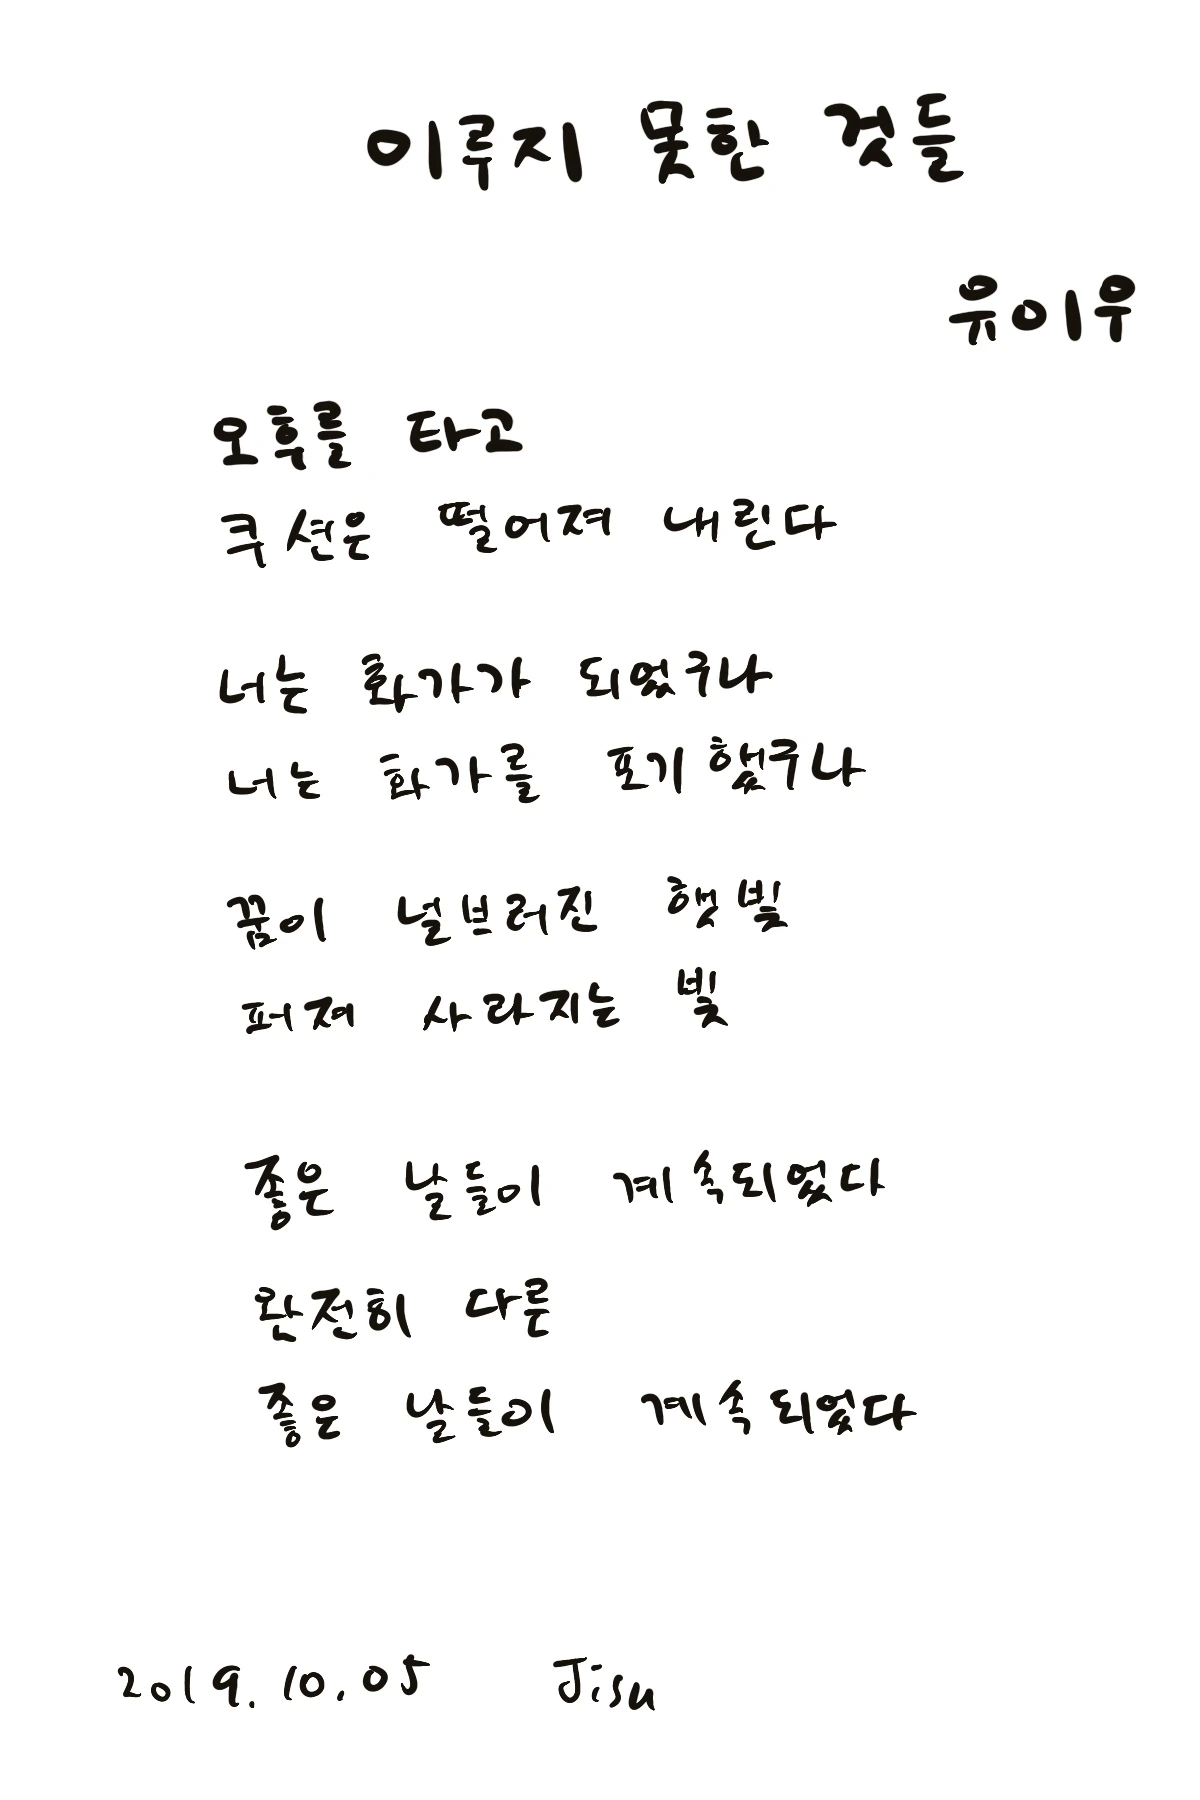 이루지 못한 것들
유이우
오후를 타고
쿠션은 떨어져 내린다
너는 화가가 되었구나
너는 화가를 포기했구나
꿈이 널브러진 햇빛
퍼져 사라지는 빛
좋은 날들이 계속되었다
완전히 다른
좋은 날들이 계속되었다
2019. 10. 05 Jisu